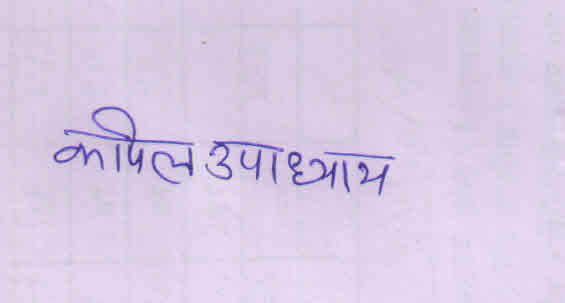 कपिल उपाध्याय